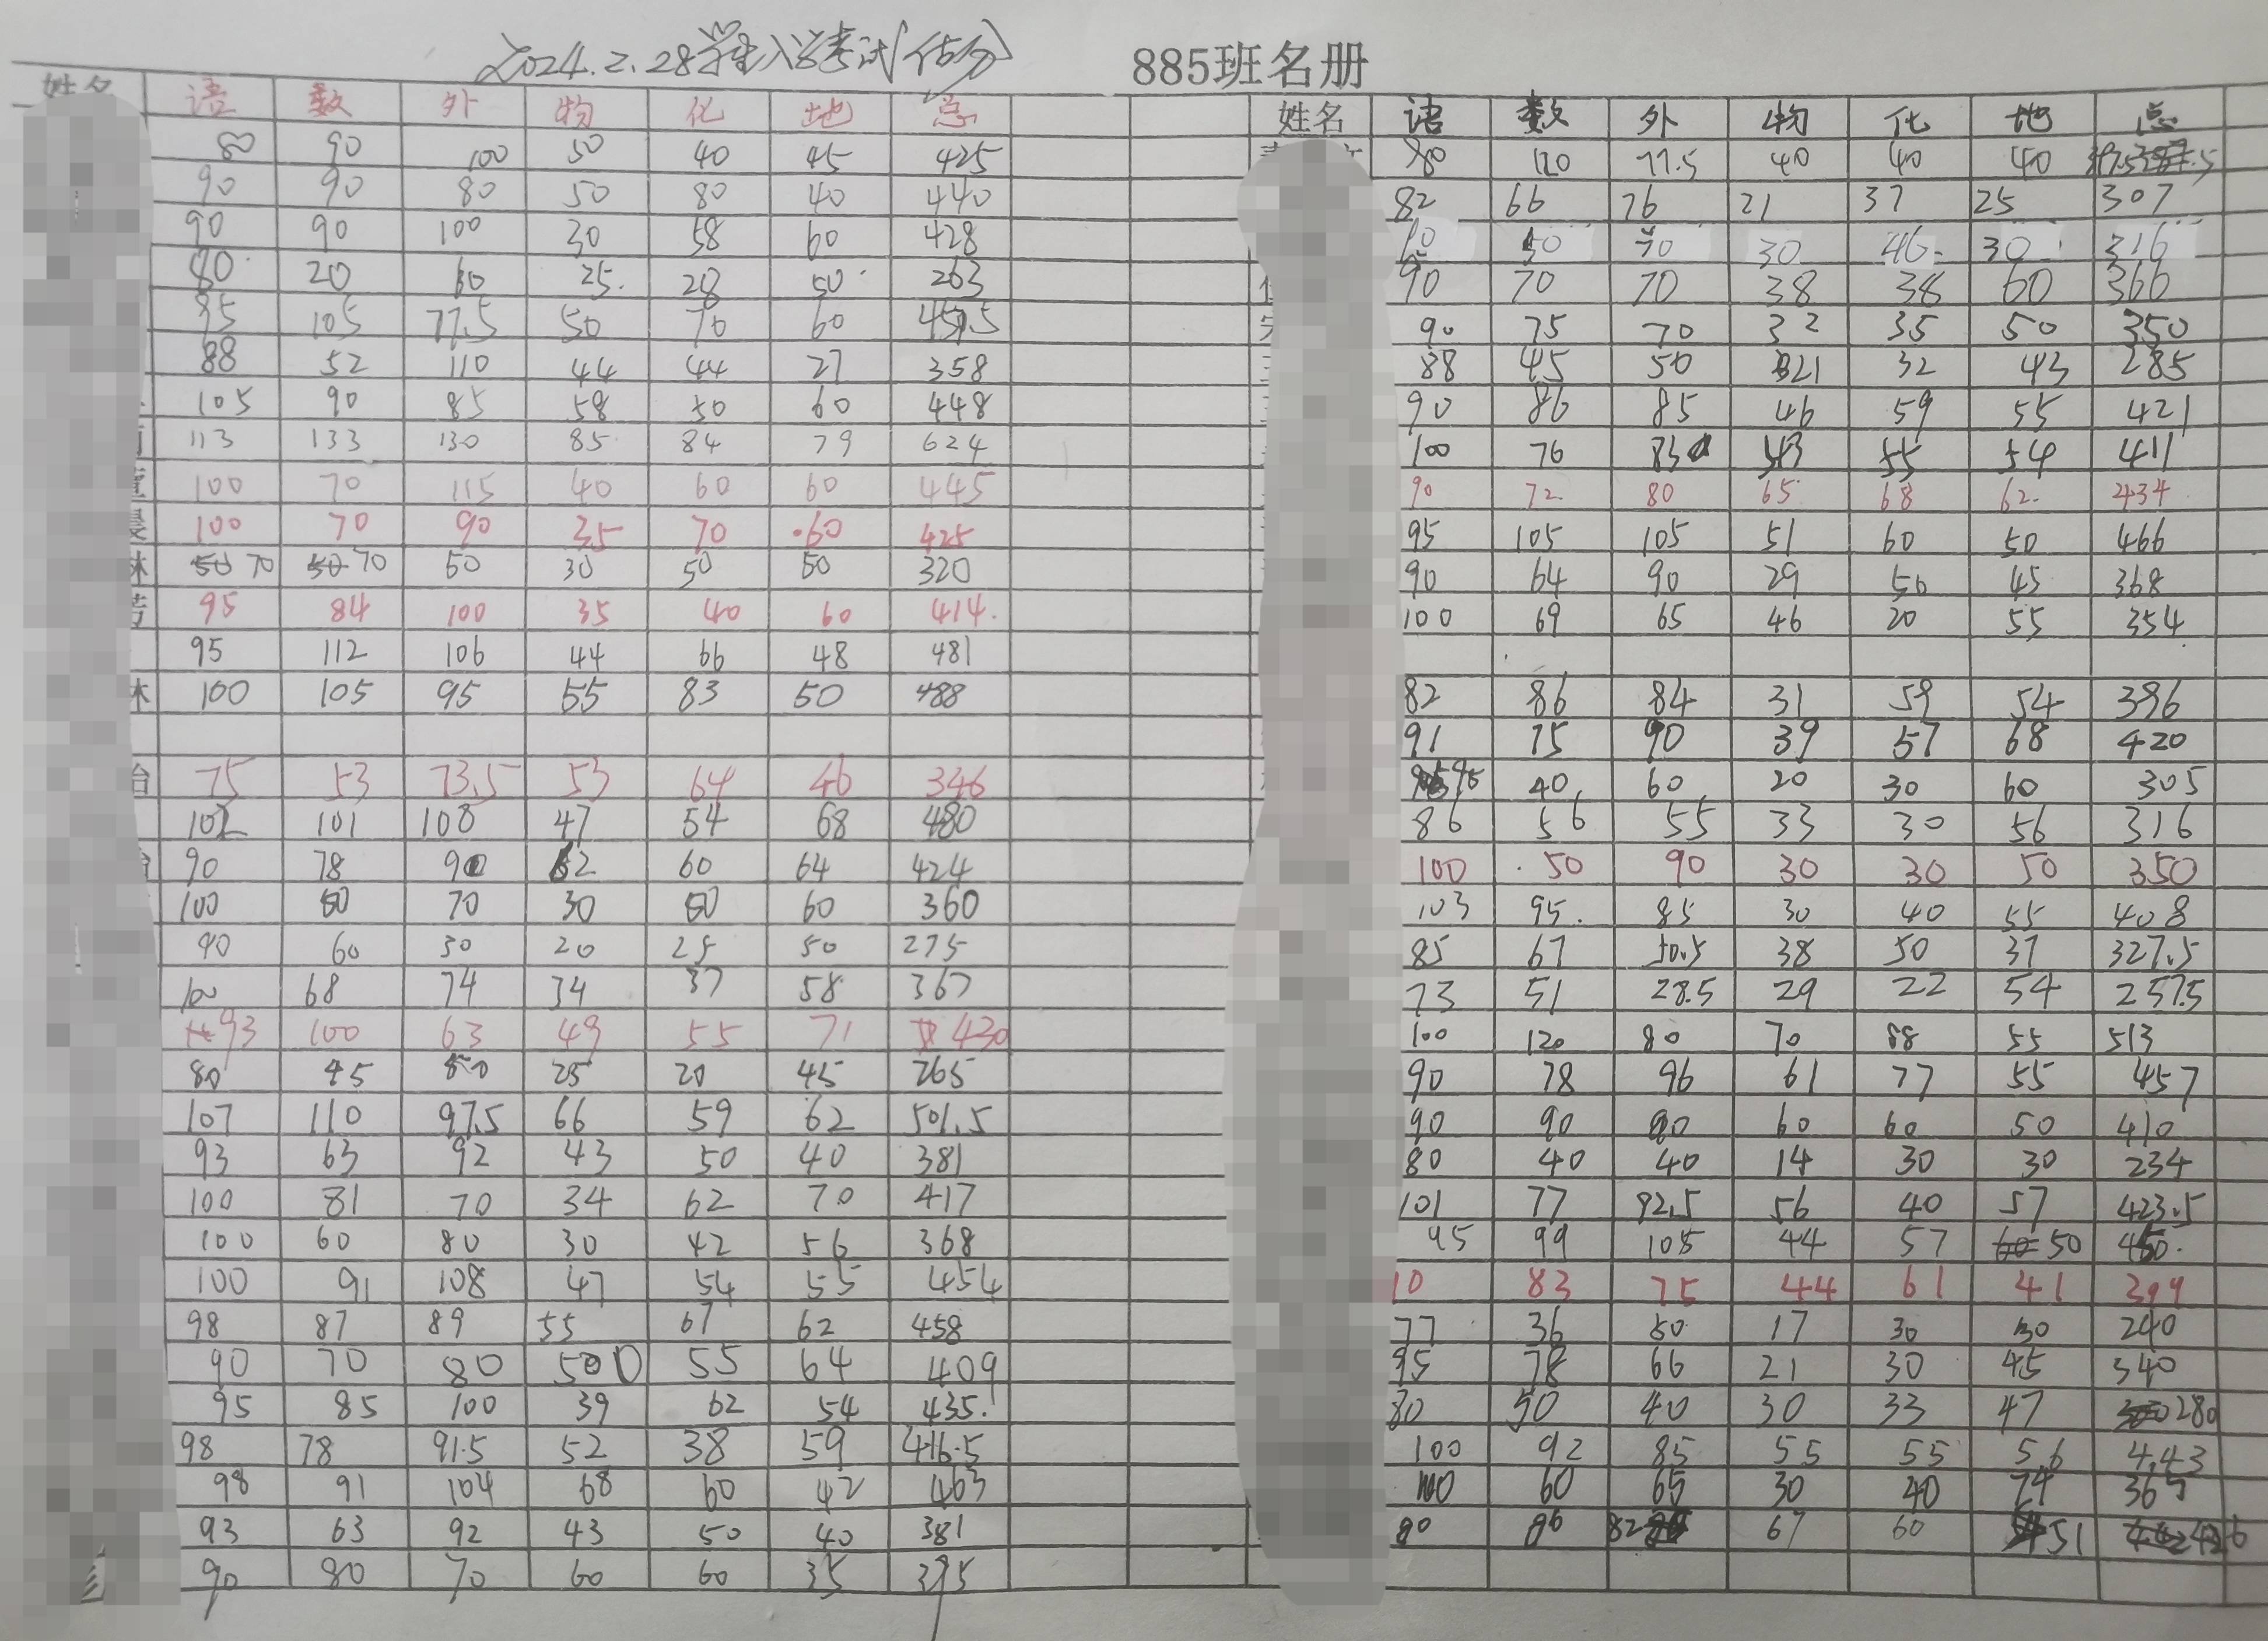 2024.2.28学生入学考试(估分) 885班名册
姓名 语 数 外 物 化 地 总 姓名 语 数 外 物 化 地 总
80 90 100 50 40 45 425 80 120 77.5 40 40 40
90 90 80 50 80 40 440 82 66 76 21 37 25 307
90 90 100 30 58 60 428 50 70 30 46 30 316
80 20 60 25 28 50 263 90 70 70 38 38 60 366
95 105 77.5 50 70 60 457.5 90 75 70 32 35 50 350
88 52 110 44 44 27 358 88 45 50 21 32 43 285
105 90 85 58 50 60 448 90 86 85 46 59 55 421
113 133 130 85 84 79 624 100 76 83 43 55 54 411
100 70 115 40 60 60 445 90 72 80 65 68 62 434
100 70 90 35 70 60 425 95 105 105 51 60 50 466
林 50 70 50 70 50 30 50 50 320 90 64 90 29 50 45 368
95 84 100 35 40 60 414 100 69 65 46 20 55 354
95 112 106 44 66 48 481
100 105 95 55 83 50 488 82 86 84 31 59 54 396
91 75 90 39 57 68 420
75 53 73.5 53 64 46 346 95 40 60 20 30 60 305
102 101 108 47 54 68 480 86 56 55 33 30 56 316
90 78 90 62 60 64 424 100 50 90 30 30 50 350
100 50 70 30 50 60 360 103 95 85 30 40 55 408
90 60 30 20 25 50 275 85 67 50.5 38 50 37 327.5
100 68 74 34 37 58 367 73 51 28.5 29 22 54 257.5
93 100 63 49 55 71 430 100 120 80 70 88 55 513
80 45 50 25 20 45 265 90 78 96 61 77 55 457
107 110 97.5 66 59 62 501.5 90 90 60 60 50 410
93 63 92 43 50 40 381 80 40 40 14 30 30 234
100 81 70 34 62 70 417 101 77 92.5 56 40 57 423.5
100 60 80 30 42 56 368 95 99 105 44 57 60 50 450
100 91 108 47 54 55 454 83 75 44 61 41 399
98 87 89 55 67 62 458 77 36 50 17 30 30 240
90 70 80 50 55 64 409 95 78 66 21 30 45 340
95 85 100 39 62 54 435 80 50 40 30 33 47 280
98 78 91.5 52 38 59 416.5 100 92 85 55 55 56 443
98 91 104 68 60 42 463 100 60 65 30 40 74 369
93 63 92 43 50 40 381 80 86 82 67 60 51 426
90 80 70 60 60 35 395